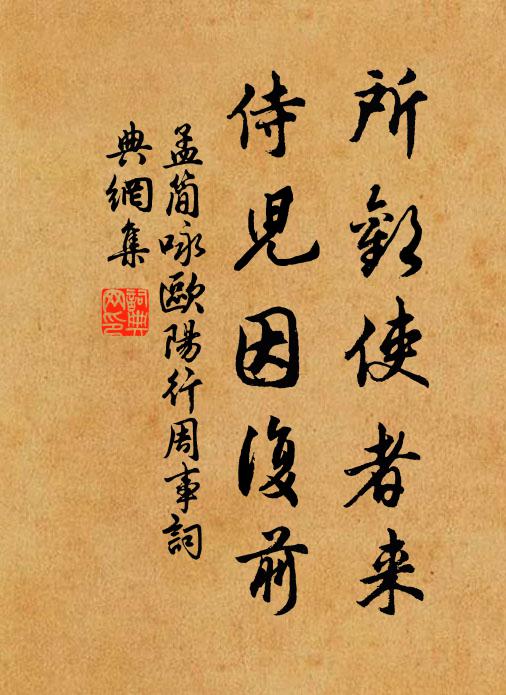 所歡使者来
侍兒因復前
孟簡咏歐陽行周事詞
典網集
詞典
网印